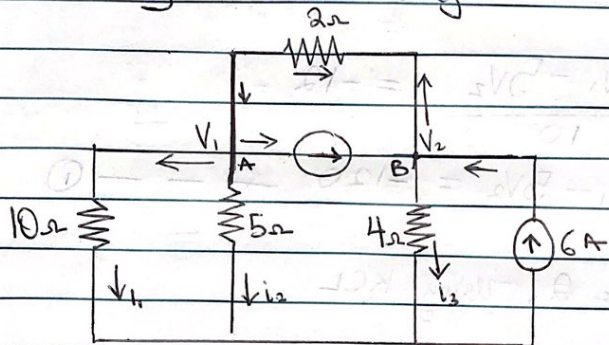 2Ω
V₁
A
V₂
B
10Ω
5Ω
4Ω
6A
I₁
i₂
i₃